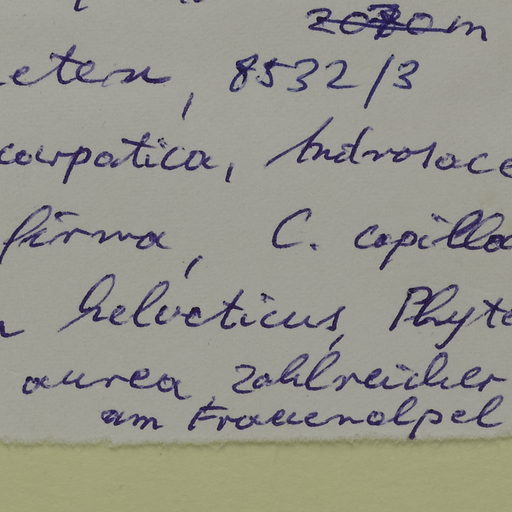 m
etern, 8532/3
carpatica, Androsace
firma, C. capilla
helveticus, Phyte
aurea, zahlreicher
am Frauenalpel